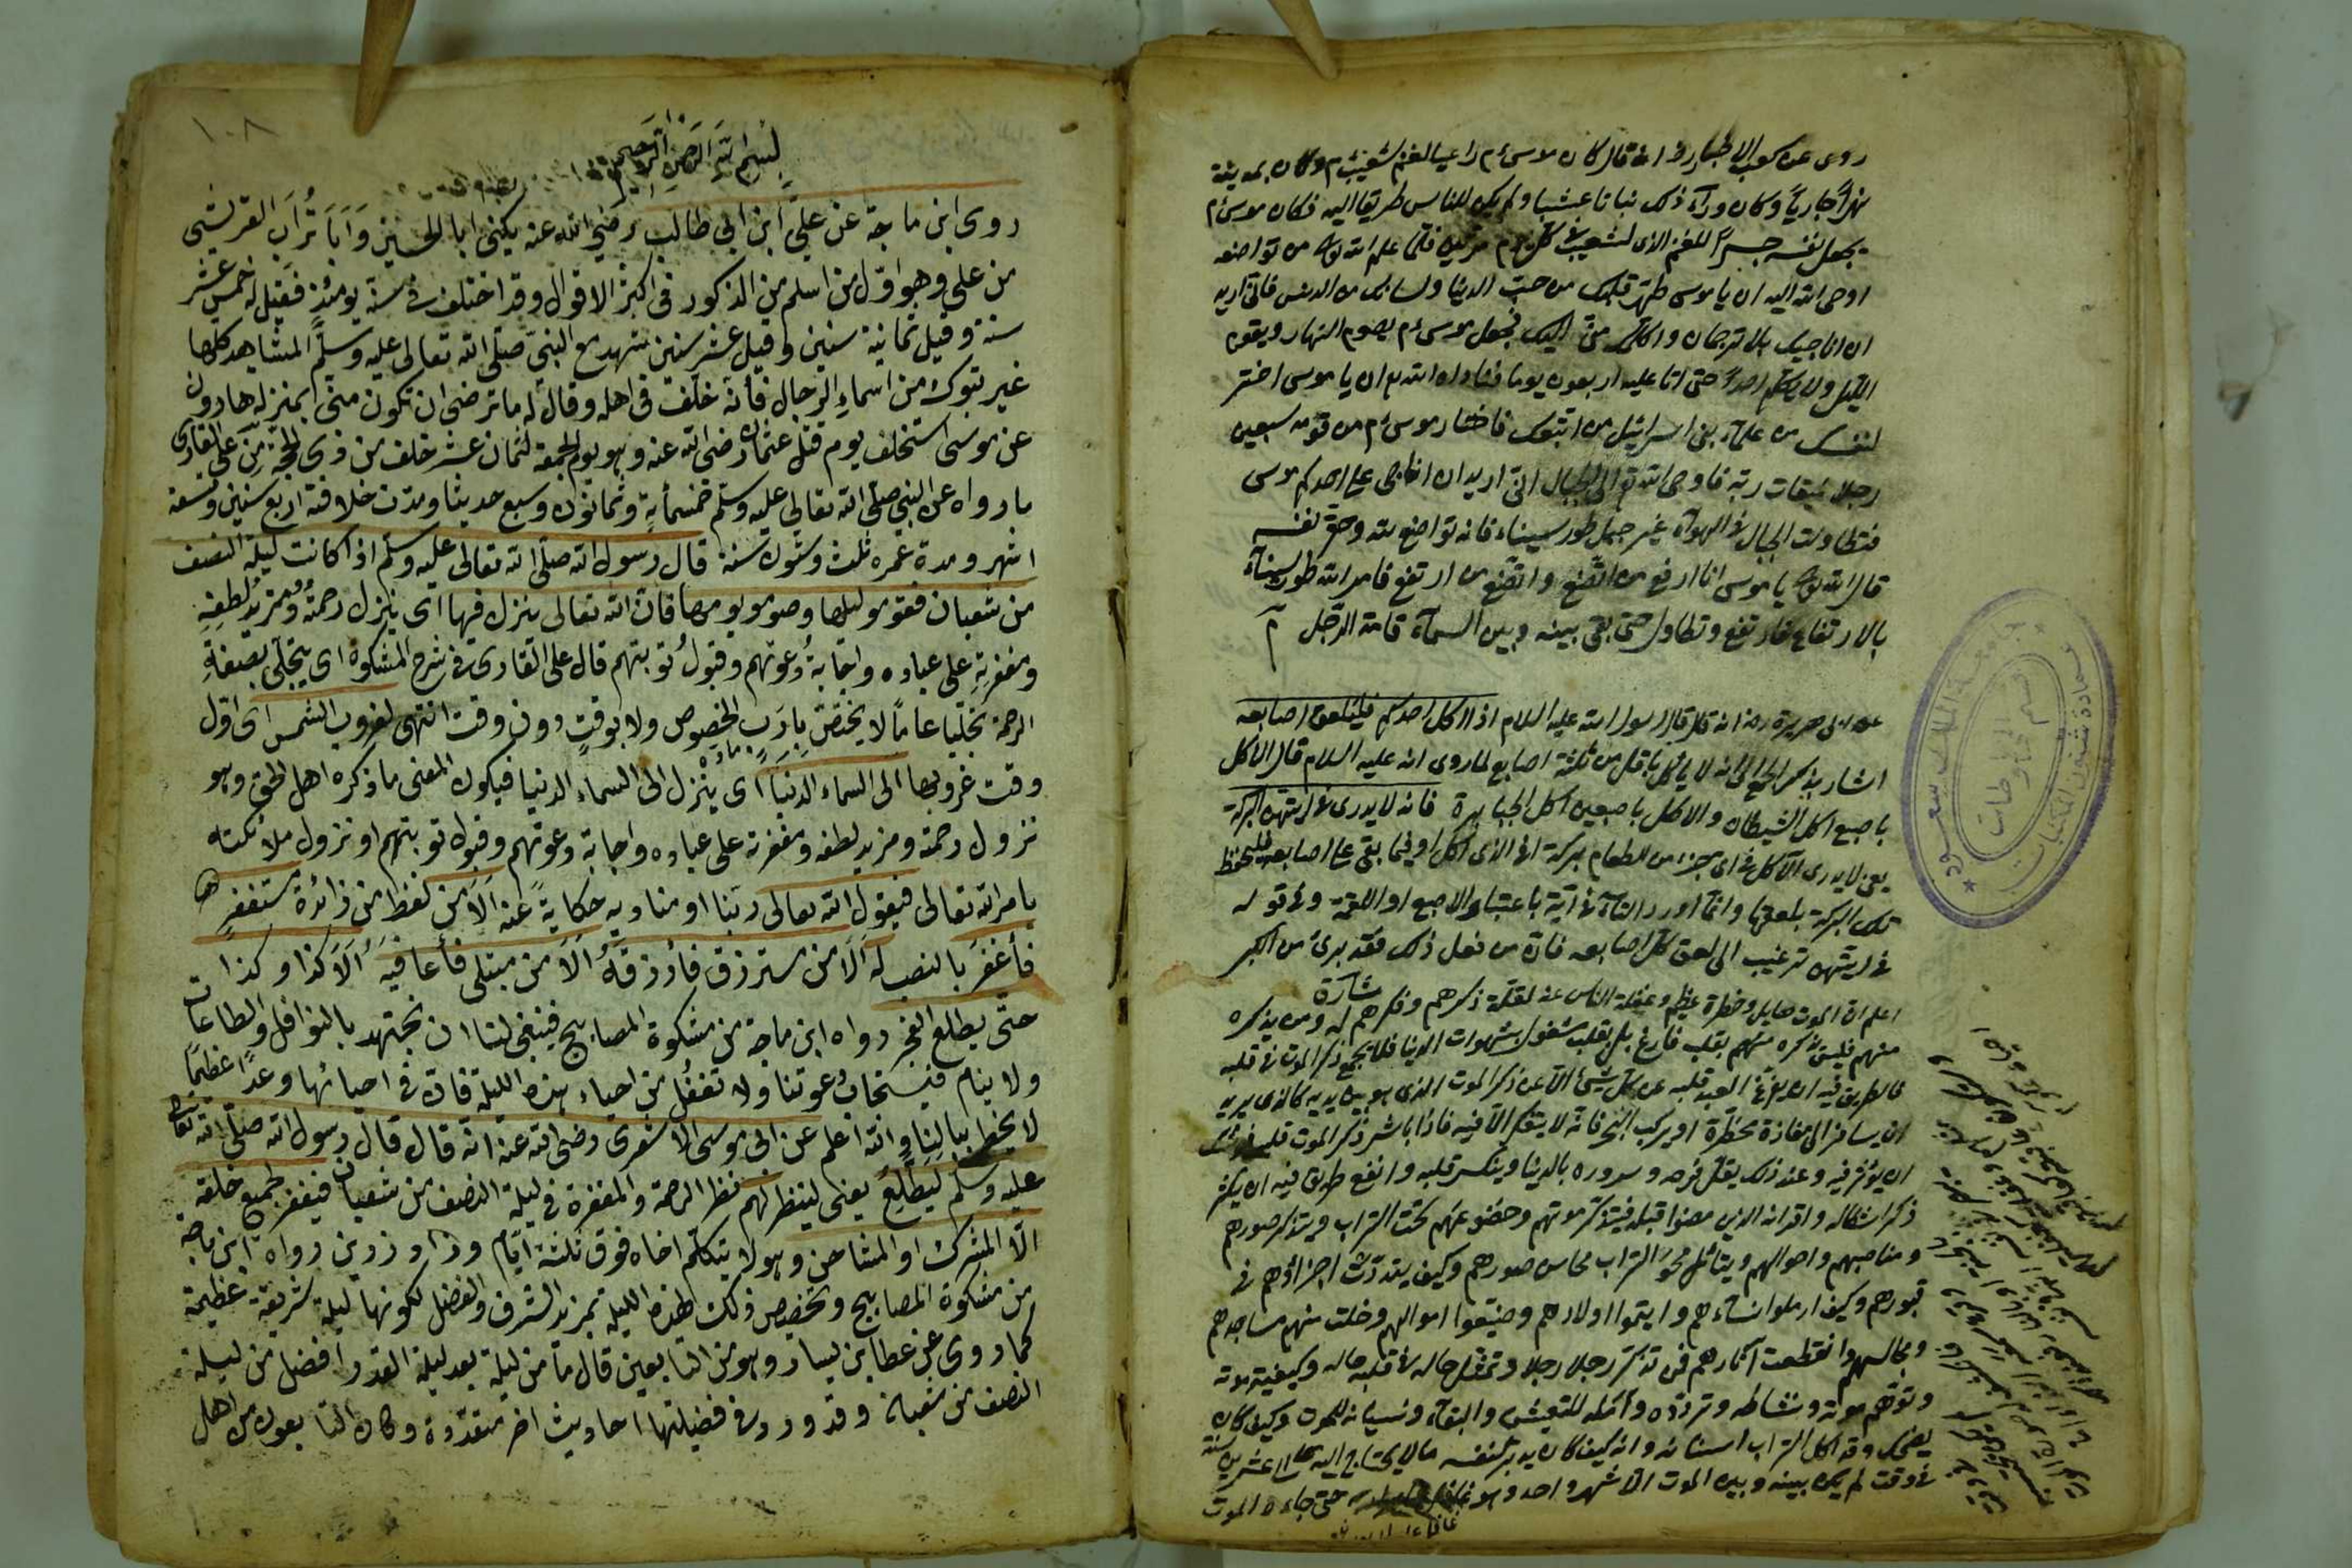 روى عن كعب الاخبار رض انه قال كان موسى ءم راعيا لغنم لشعيب ءم وكان بمدينة
نهرًا جاريًا وكان ورآء ذلك نباتا عشبا ولم يكن للناس طريقا اليه فكان موسى ءم
يجعل نفسه جسرًا للغنم الذى لشعيب فى كل يوم مرتين فلما علم الله تعالى من تواضعه
اوحى الله اليه ان يا موسى طهّر قلبك من حبّ الدنيا ولسانك من الدنس فانى اريد
ان اناجيك بلا ترجمان واكلّم منى اليك فجعل موسى ءم يصوم النهار ويقوم
الليل ولا يكلّم احدًا حتى اتا عليه اربعون يوما فناداه الله ان يا موسى اختر
لنفسك من علمآء بنى اسرائيل من اتبعك فاختار موسى ءم من قومه سبعين
رجلا لميقات ربّه فاوحى الله الى الجبال انى اريد ان اناجى على احدكم موسى
فتطاولت الجبال فى الهوآء غير جبل طور سيناء فانه تواضع لله وحقر نفسه
قال الله تعالى يا موسى انا ارفع من اتضع واتضع من ارتفع فامر الله طور سينآء
بالارتفاع فارتفع وتطاول حتى بقى بينه وبين السمآء قامة الرجل م
عن ابى هريرة رض انه قال قال رسول الله عليه السلام اذا اكل احدكم فليلعق اصابعه
اشار بذكر الجمع الى انه لا يأكل باقل من ثلثة اصابع لما روى انه عليه السلام قال الاكل
باصبع اكل الشيطان والاكل باصبعين اكل الجبابرة فانه لا يدرى فى ايتهن البركة
يعنى لا يدرى الآكل فى اى جزء من الطعام بركة افى الذى اكل او فيما بقى على اصابعه فليحفظ
تلك البركة بلعقها وانما اورد التآء فى آية باعتبار الاصبع او اللقمة وفى قوله
فى ايتهن ترغيب الى لعق كل اصابعه فانّ من فعل ذلك فقد برئ من الكبر
شارح
اعلم ان الموت هايل وخطره عظيم وغفلة الناس عنه لقلّة ذكرهم وفكرهم له ومن يذكره
منهم فليس يذكره منهم بقلب فارغ بل بقلب مشغول بشهوات الدنيا فلا ينجح ذكر الموت فى قلبه
فالطريق فيه ان يفرّغ العبد قلبه عن كل شيئ الا عن ذكر الموت الذى هو بين يديه كالذى يريد
ان يسافر الى مفازة مخطرة او يركب البحر فانّه لا يتفكر الا فيه فاذا باشر ذكر الموت قلبه
ان يؤثر فيه وعند ذلك يقلّ فرحه وسروره بالدنيا وينكسر قلبه وانفع طريق فيه ان يكثر
ذكر اشكاله واقرانه الذين مضوا قبله فيتذكّر موتهم وحضوعهم تحت التراب ويتذكر صورهم
ومناصبهم واحوالهم ويتأمل محو التراب محاسن صورهم وكيف يتبددت اجزاؤهم فى
قبورهم وكيف ارملوا نساءهم وايتموا اولادهم وضيّعوا اموالهم وخلت منهم مساجدهم
ومجالسهم وانقطعت آثارهم فمن تذكّر رجلا رجلا وتمثل حاله فى قلبه حاله وكيفية موته
وتوهّم موته ونشاطه وتردده وأمله للتعيش والبقآء ونسيانه للموت وكيف كان
يضحك وقد اكل التراب اسنانه وانه كيف كان يدبر لنفسه ما لا يحتاج اليه الى عشرين سنة
فى وقت لم يكن بينه وبين الموت الا شهر واحد وهو غافل حتى جاءه الموت
جامعة الملك سعود
عمادة شئون المكتبات
قسم المخطوطات
١٠٨
بسم الله الرحمن الرحيم
روى ابن ماجة عن علىّ ابن ابى طالب رضى الله عنه يكنى ابا الحسين وَاَبَا تُرَاب القريشى
من على وهو اوّل من اسلم من الذكور فى اكثر الاقوال وقد اختلف فى سنّه يومئذ فقيل له خمس عشر
سنة وقيل ثمانية سنين وقيل عشر سنين شهد مع النبىّ صلّى الله تعالى عليه وسلّم المشاهد كلها
غير تبوك من اسماء الرجال فأنه خلّف فى اهله وقال له ما ترضى ان تكون منّى بمنزلة هارون
عن موسى استخلف يوم قتل عثمان رضى الله عنه وهو يوم الجمعة لثمان عشر خلف من ذى الحجة من على القارى
ما رواه عن النبى صلّى الله تعالى عليه وسلّم خمسمأية وثمانون وسبع حديثا ومدّت خلافته اربع سنين وتسعة
اشهر ومدة عمره ثلث وستون سنة قال رسول الله صلّى الله تعالى عليه وسلّم اذا كانت ليلة النصف
من شعبان فقوموا ليلها وصوموا يومها فانّ الله تعالى ينزل فيها اى ينزل رحمةُ ومزيدُ لطفه
ومغفرتهِ على عباده واجابةُ دعوتهم وقبولُ توبتهم قال على القارى فى شرح المشكوة اى يتجلّى بصفةِ
الرحمة تجلّيا عامًا لا يختصّ بارباب الخصوص ولا بوقتٍ دون وقت انتهى لغروب الشمس اى اوّل
وقت غروبها الى السماء الدنيا اى ينزل الى السماء الدنيا فيكون المعنى ما ذكره اهل الحق وهو
نزول رحمة ومزيد لطفه ومغفرته على عباده واجابة دعوتهم وقبول توبتهم او نزول ملائكته
بامر الله تعالى فيقول الله تعالى ربّنا او مناديه حكايةً عنه اَلَا من لفظ من زائدة مستغفرٍ
فأغفرَ بالنصب له اَلَا من مسترزق فأرزقَهُ اَلَا من مبتلى فأعافيَه اَلَا كذا وكذا
حتّى يطلع الفجر رواه ابن ماجة من مشكوة المصابيح فينبغى لنا ان نجتهد بالنوافل والطاعات
ولا ينام فيستجاب دعوتنا ولا تغفل من احياء هذه الليلة فان فى احيائها وعدًا عظيمًا
لا يخطر ببالنا والله اعلم عن ابى موسى الاشعرى رضى الله عنه انه قال قال رسول الله صلّى الله تعالى
عليه وسلّم ليطّلع يعنى لينظر لهم نظر الرحمة والمغفرة فى ليلة النصف من شعبان فيغفر جميع خلقه
الّا المشرك او المشاحن وهو لا يتكلّم اخاه فوق ثلثة ايّام وزاد رزين رواه ابن ماجة
من مشكوة المصابيح وتخصيص ذلك لهذه الليلة بمزيد الشرف والفضل لكونها ليلة شريفة عظيمة
كما روى عن عطا بن يسار وهو من التابعين قال ما من ليلة بعد ليلة القدر افضل من ليلة
النصف من شعبان وقد ورد فى فضيلتها احاديث اخر متعدّدة وكان التابعون من اهل